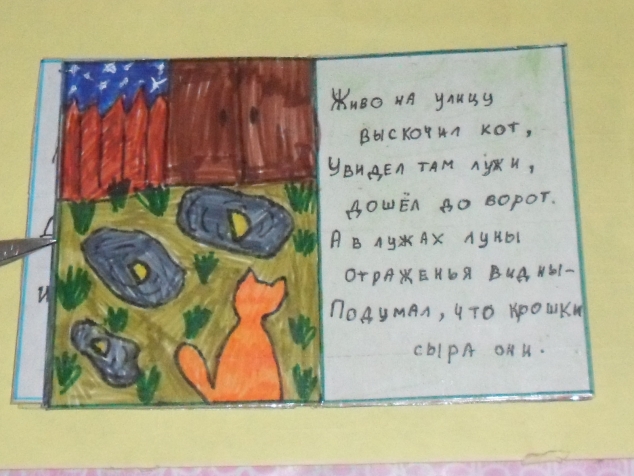 Живо на улицу
выскочил кот,
Увидел там лужи,
дошёл до ворот.
А в лужах луны
отраженья видны-
Подумал, что крошки
сыра они.